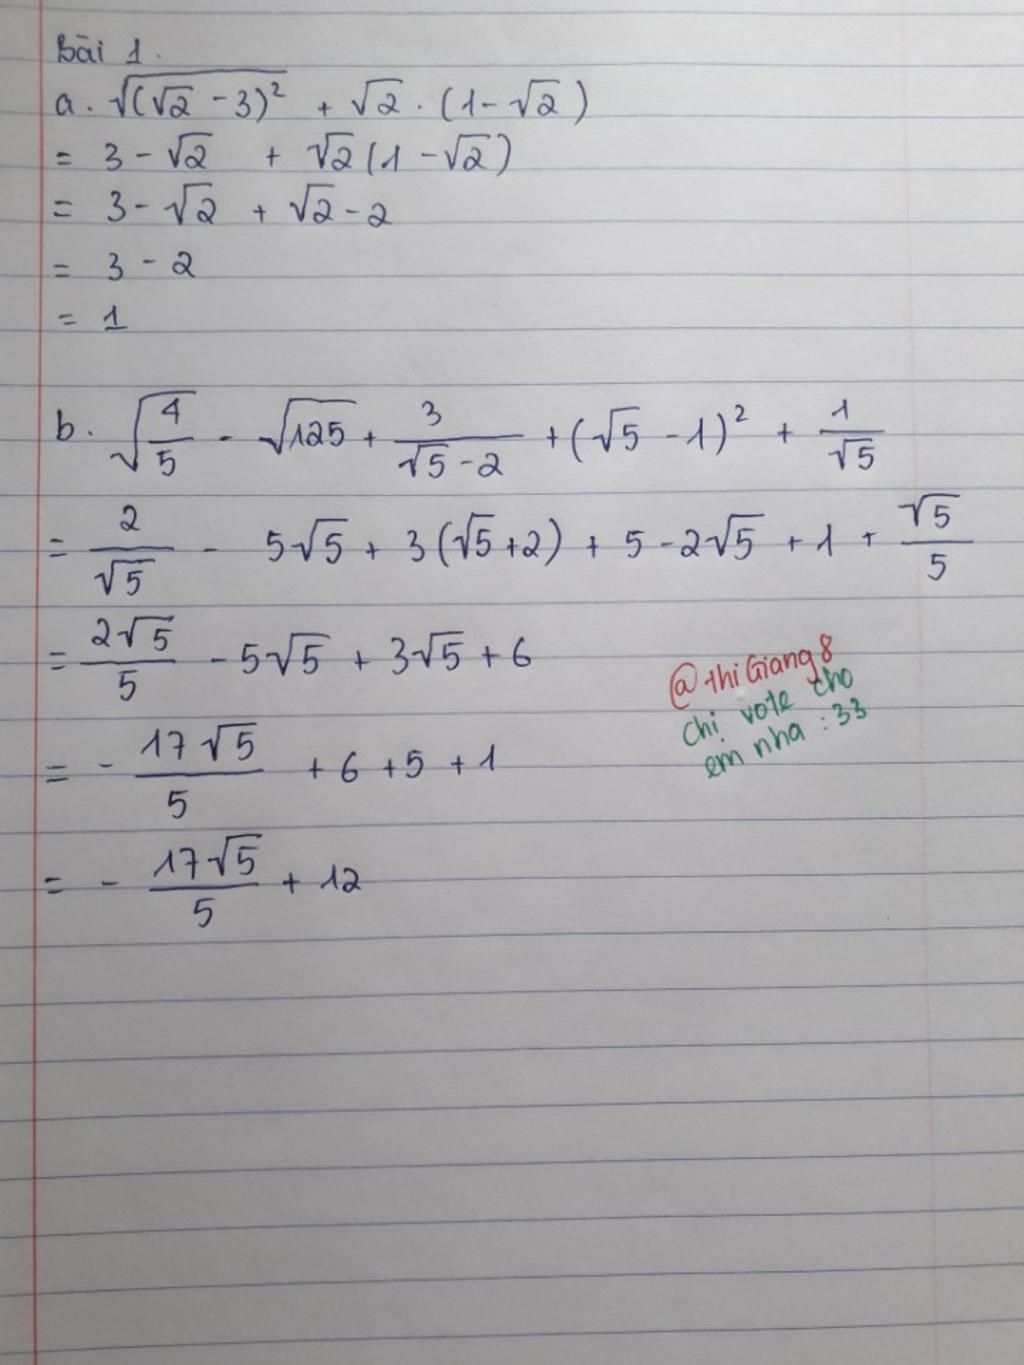 Bài 1.
a. √(√2 - 3)² + √2 . (1 - √2)
= 3 - √2 + √2 (1 - √2)
= 3 - √2 + √2 - 2
= 3 - 2
= 1
b. √(4/5) - √125 + 3/(√5 - 2) + (√5 - 1)² + 1/√5
= 2/√5 - 5√5 + 3(√5 + 2) + 5 - 2√5 + 1 + √5/5
= 2√5/5 - 5√5 + 3√5 + 6
= - 17√5/5 + 6 + 5 + 1
= - 17√5/5 + 12
@thiGiang8
chị vote cho
em nha : 33